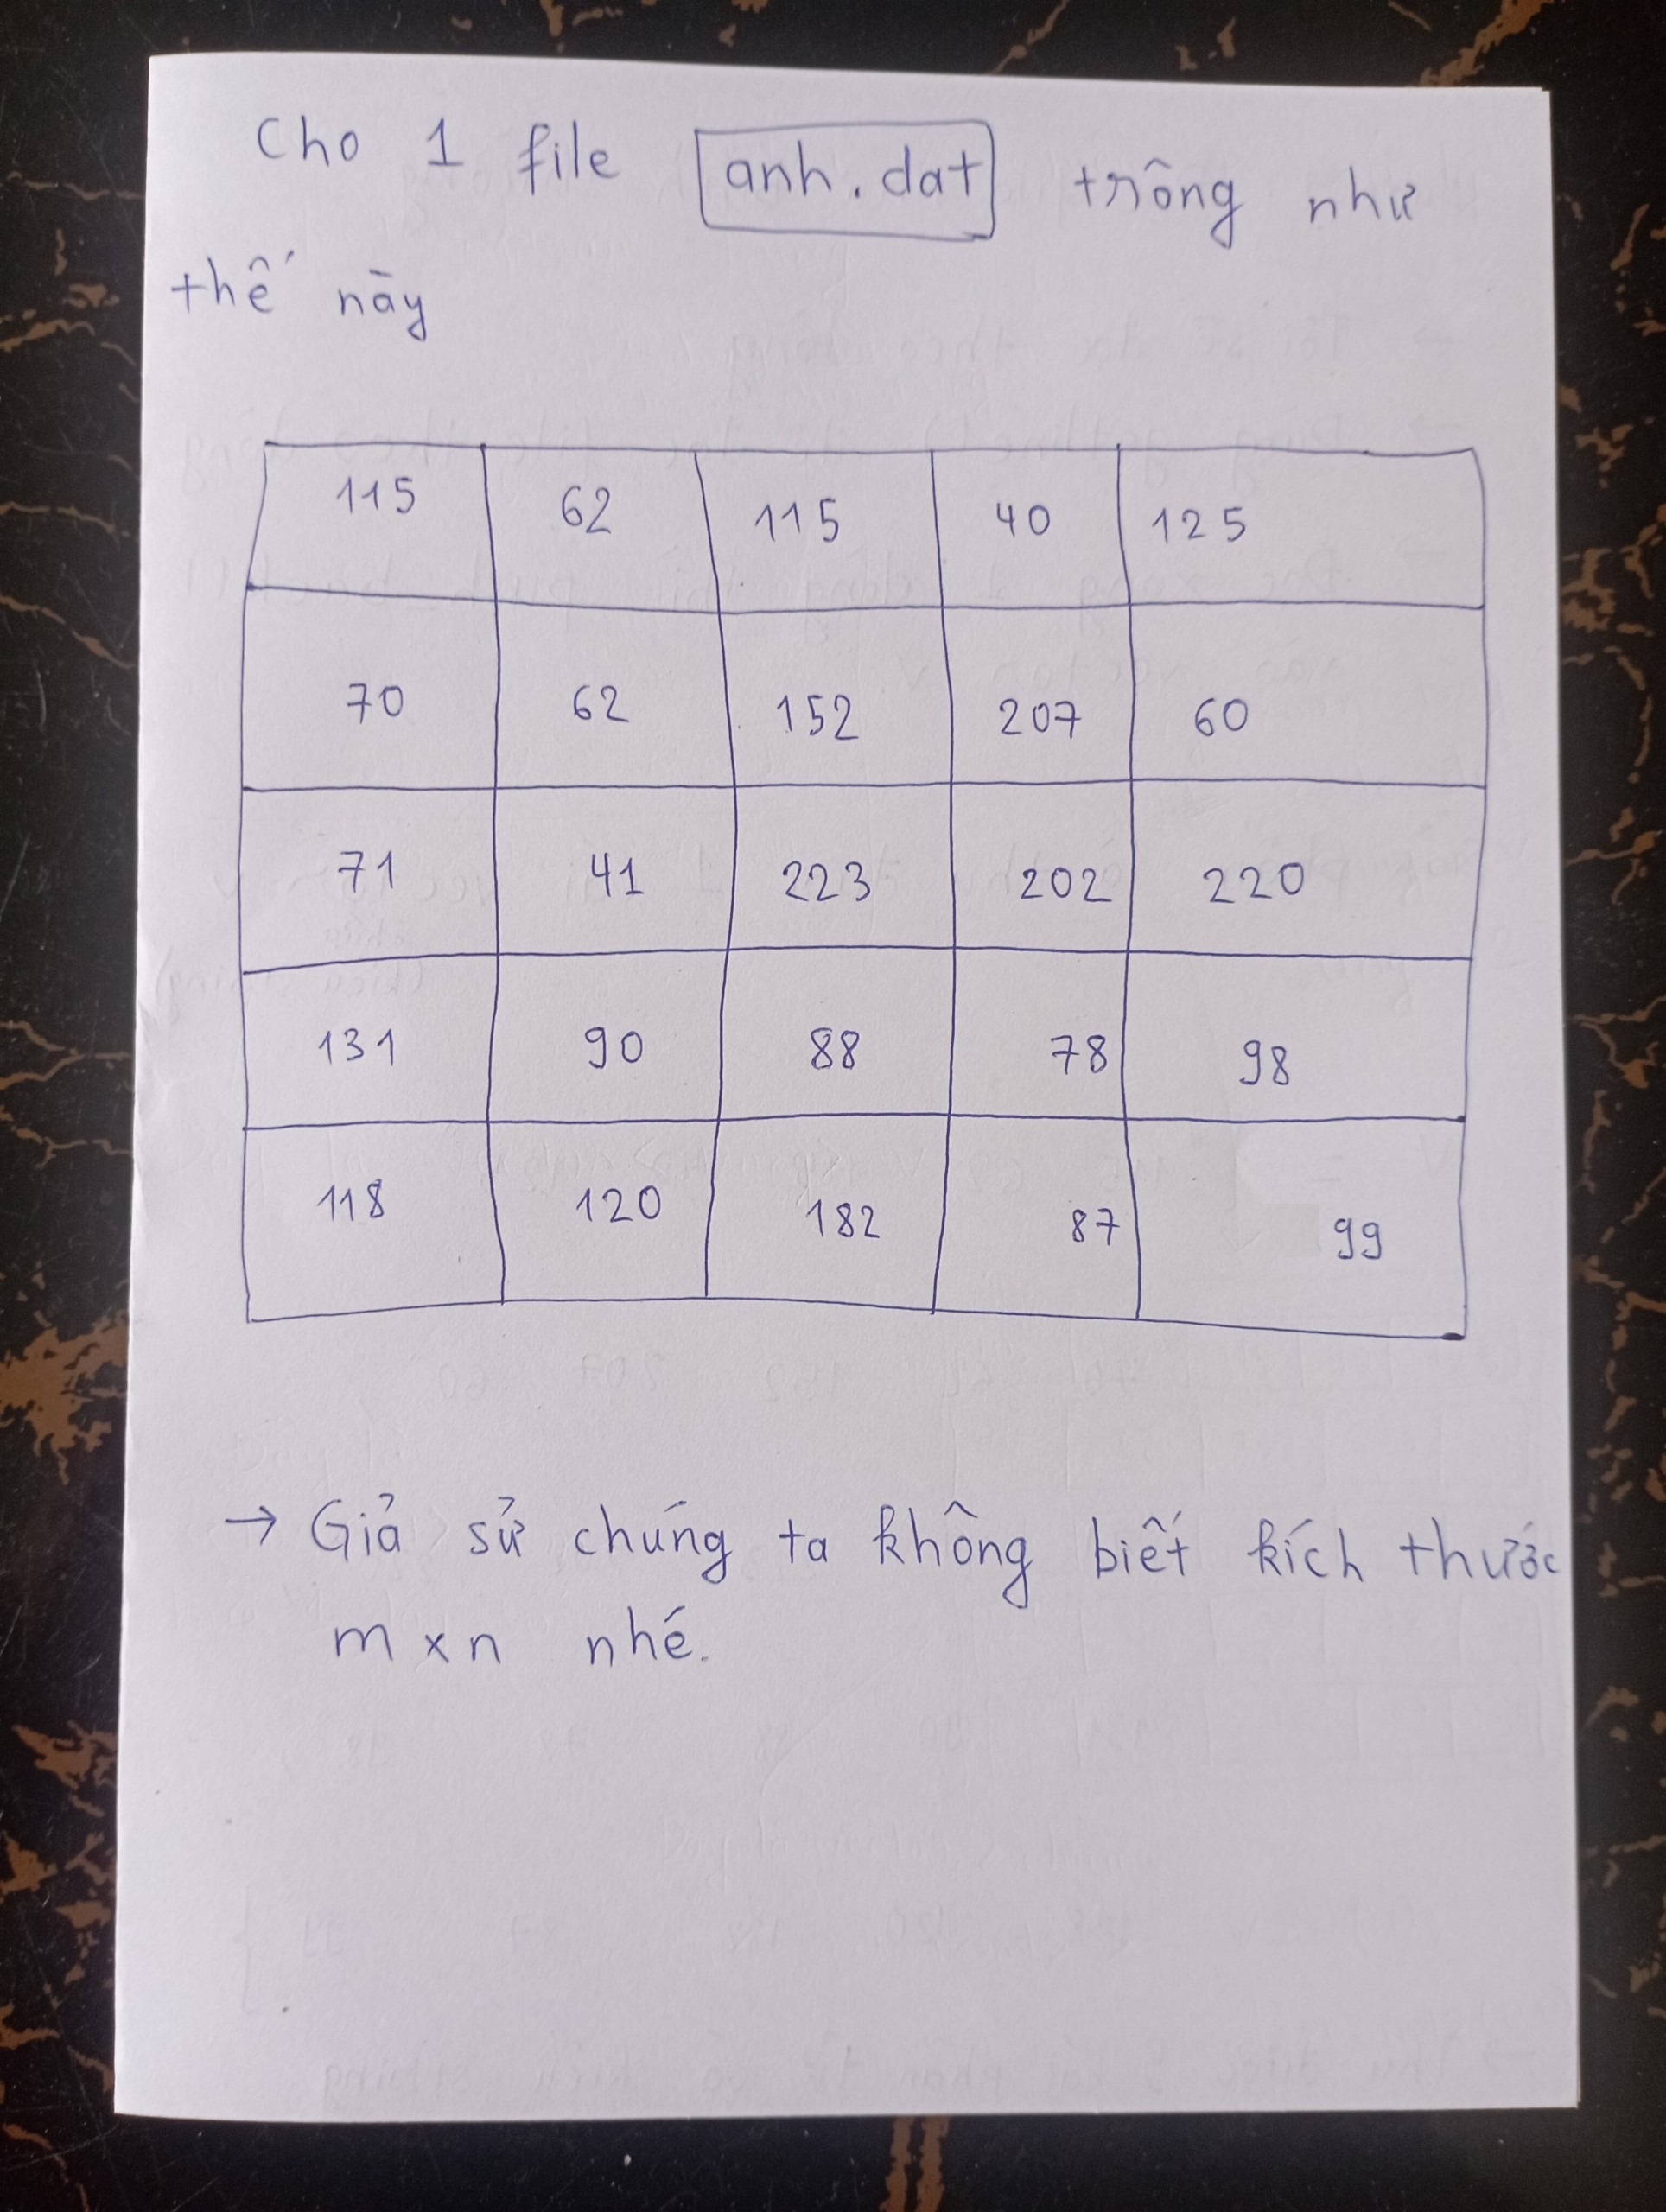 Cho 1 file anh.dat trông như
thế này
115 62 115 40 125
70 62 152 207 60
71 41 223 202 220
131 90 88 78 98
118 120 182 87 99
→ Giả sử chúng ta không biết kích thước
m x n nhé.